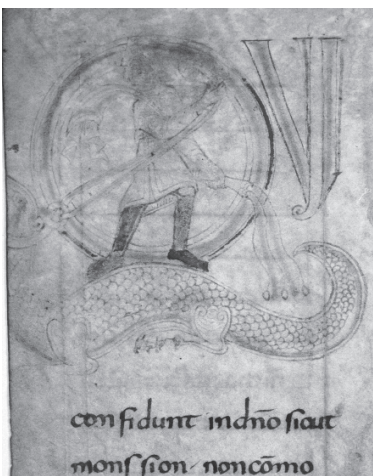 QUI
confidunt in dño sicut
mons sion · non cõmo